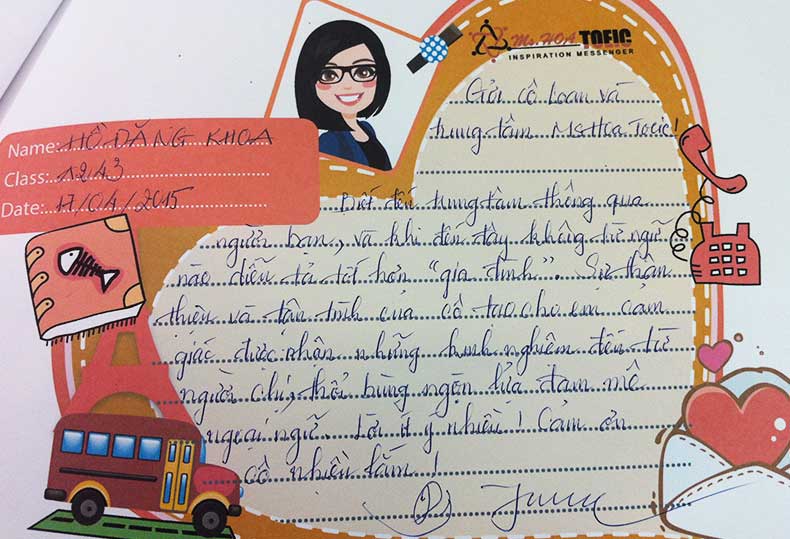 Ms. HOA TOEIC
INSPIRATION MESSENGER
Gửi cô Loan và
trung tâm MsHoa Toeic!
Name: HỒ ĐĂNG KHOA
Class: 1243
Date: 17/04/2015
Biết đến trung tâm thông qua
người bạn, và khi đến đây không từ ngữ
nào diễn tả tốt hơn "gia đình". Sự thân
thiện và tận tình của cô tạo cho em cảm
giác được nhận những kinh nghiệm đến từ
người chị, thổi bùng ngọn lửa đam mê
ngoại ngữ. Lời ít ý nhiều! Cảm ơn
cô nhiều lắm!